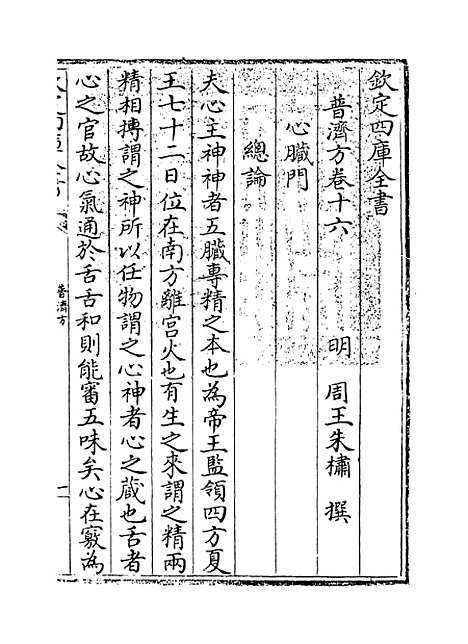 欽定四庫全書
普濟方卷十六　明　周王朱橚　撰
心臟門
總論
夫心主神神者五臟專精之本也為帝王監領四方夏
王七十二日位在南方離宮火也有生之來謂之精兩
精相搏謂之神所以任物謂之心神者心之藏也舌者
心之官故心氣通於舌舌和則能審五味矣心在竅為
普濟方